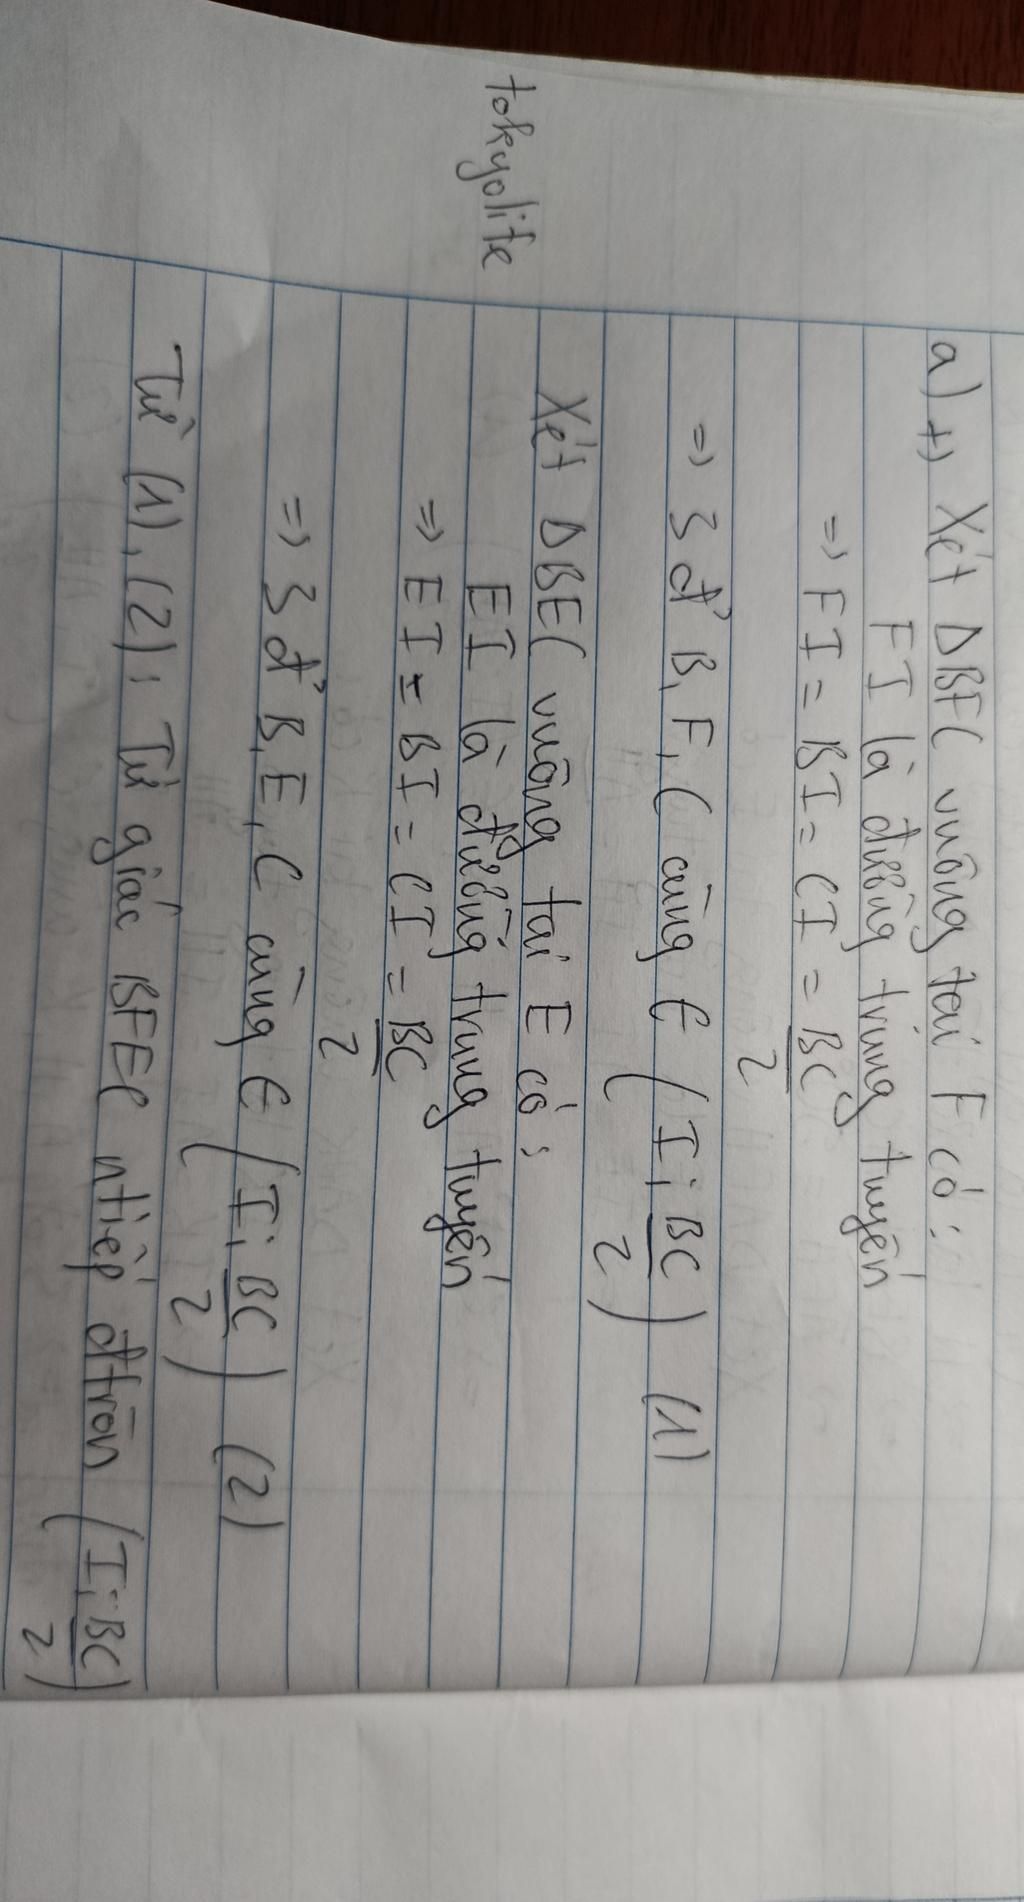 tokyolife
a) +) Xét ΔBFC vuông tại F có:
FI là đường trung tuyến
=> FI = BI = CI = BC/2
=> 3 đ' B, F, C cùng ∈ (I; BC/2) (1)
Xét ΔBEC vuông tại E có:
EI là đường trung tuyến
=> EI = BI = CI = BC/2
=> 3 đ' B, E, C cùng ∈ (I; BC/2) (2)
Từ (1), (2): Tứ giác BFEC ntiếp đtròn (I; BC/2)